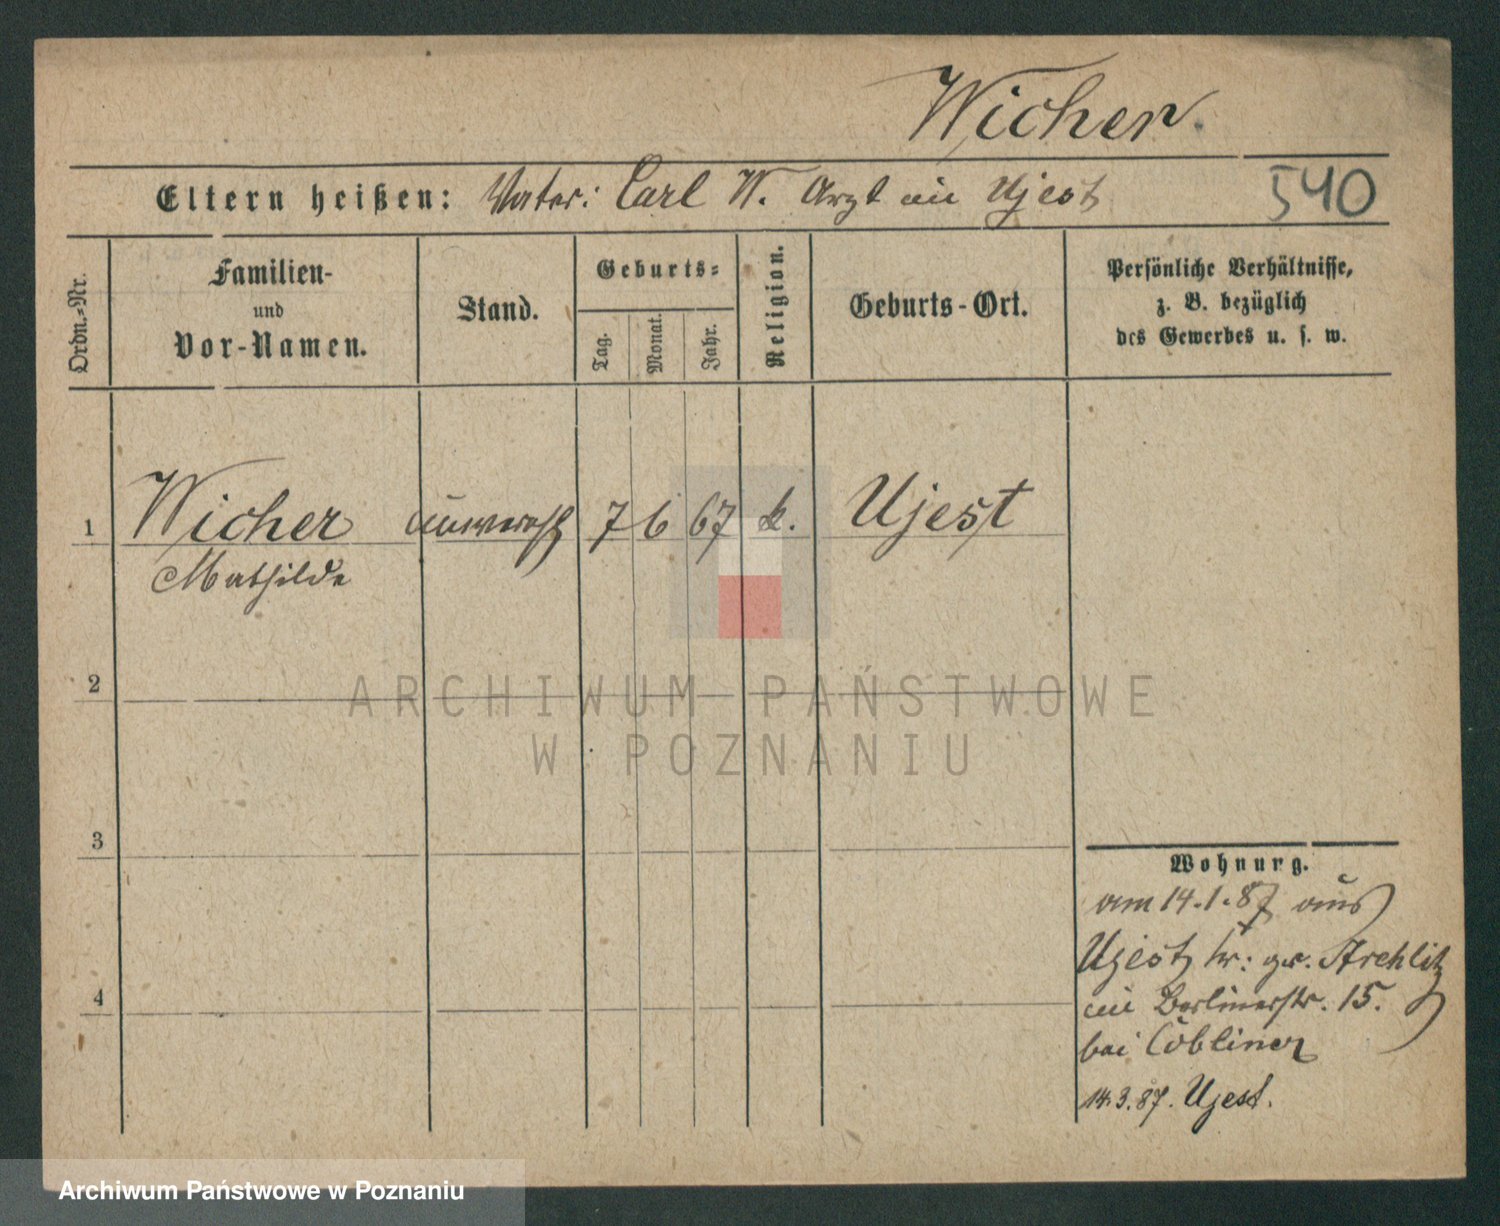 Wicher.
Eltern heißen: Vater: Carl W. Arzt in Ujest
540
Ordn.-Nr.
Familien-
und
Vor-Namen.
Stand.
Geburts-
Tag.
Monat.
Jahr.
Religion.
Geburts-Ort.
Persönliche Verhältnisse,
z. B. bezüglich
des Gewerbes u. s. w.
1 Wicher unverh 7 6 67 k. Ujest
Mathilde
2
ARCHIWUM PAŃSTWOWE
W POZNANIU
3
Wohnung.
am 14.1.87 aus
Ujest
in Berlinerstr. 15.
bei Cobliner
4
14.3.87. Ujest.
Archiwum Państwowe w Poznaniu